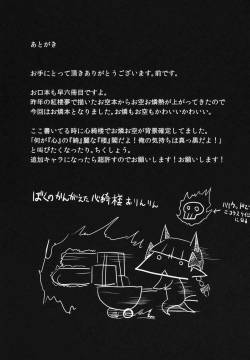 あとがき
お手にとって頂きありがとうございます。前です。
お口本も早六冊目ですよ。
昨年の紅楼夢で描いたお空本からお空お燐熱が上がってきたので
今回はお燐本となりました。お燐もお空もかわいいかわいい。
ここ書いてる時に心綺楼でお燐お空が背景確定してました。
「何が『心』の『綺』麗な『楼』閣だよ!俺の気持ちは真っ黒だよ!」
と叫びたくなったり。ちくしょう。
追加キャラになったら超許すのでお願いします!お願いします!
ぼくのかんがえた心綺楼おりんりん